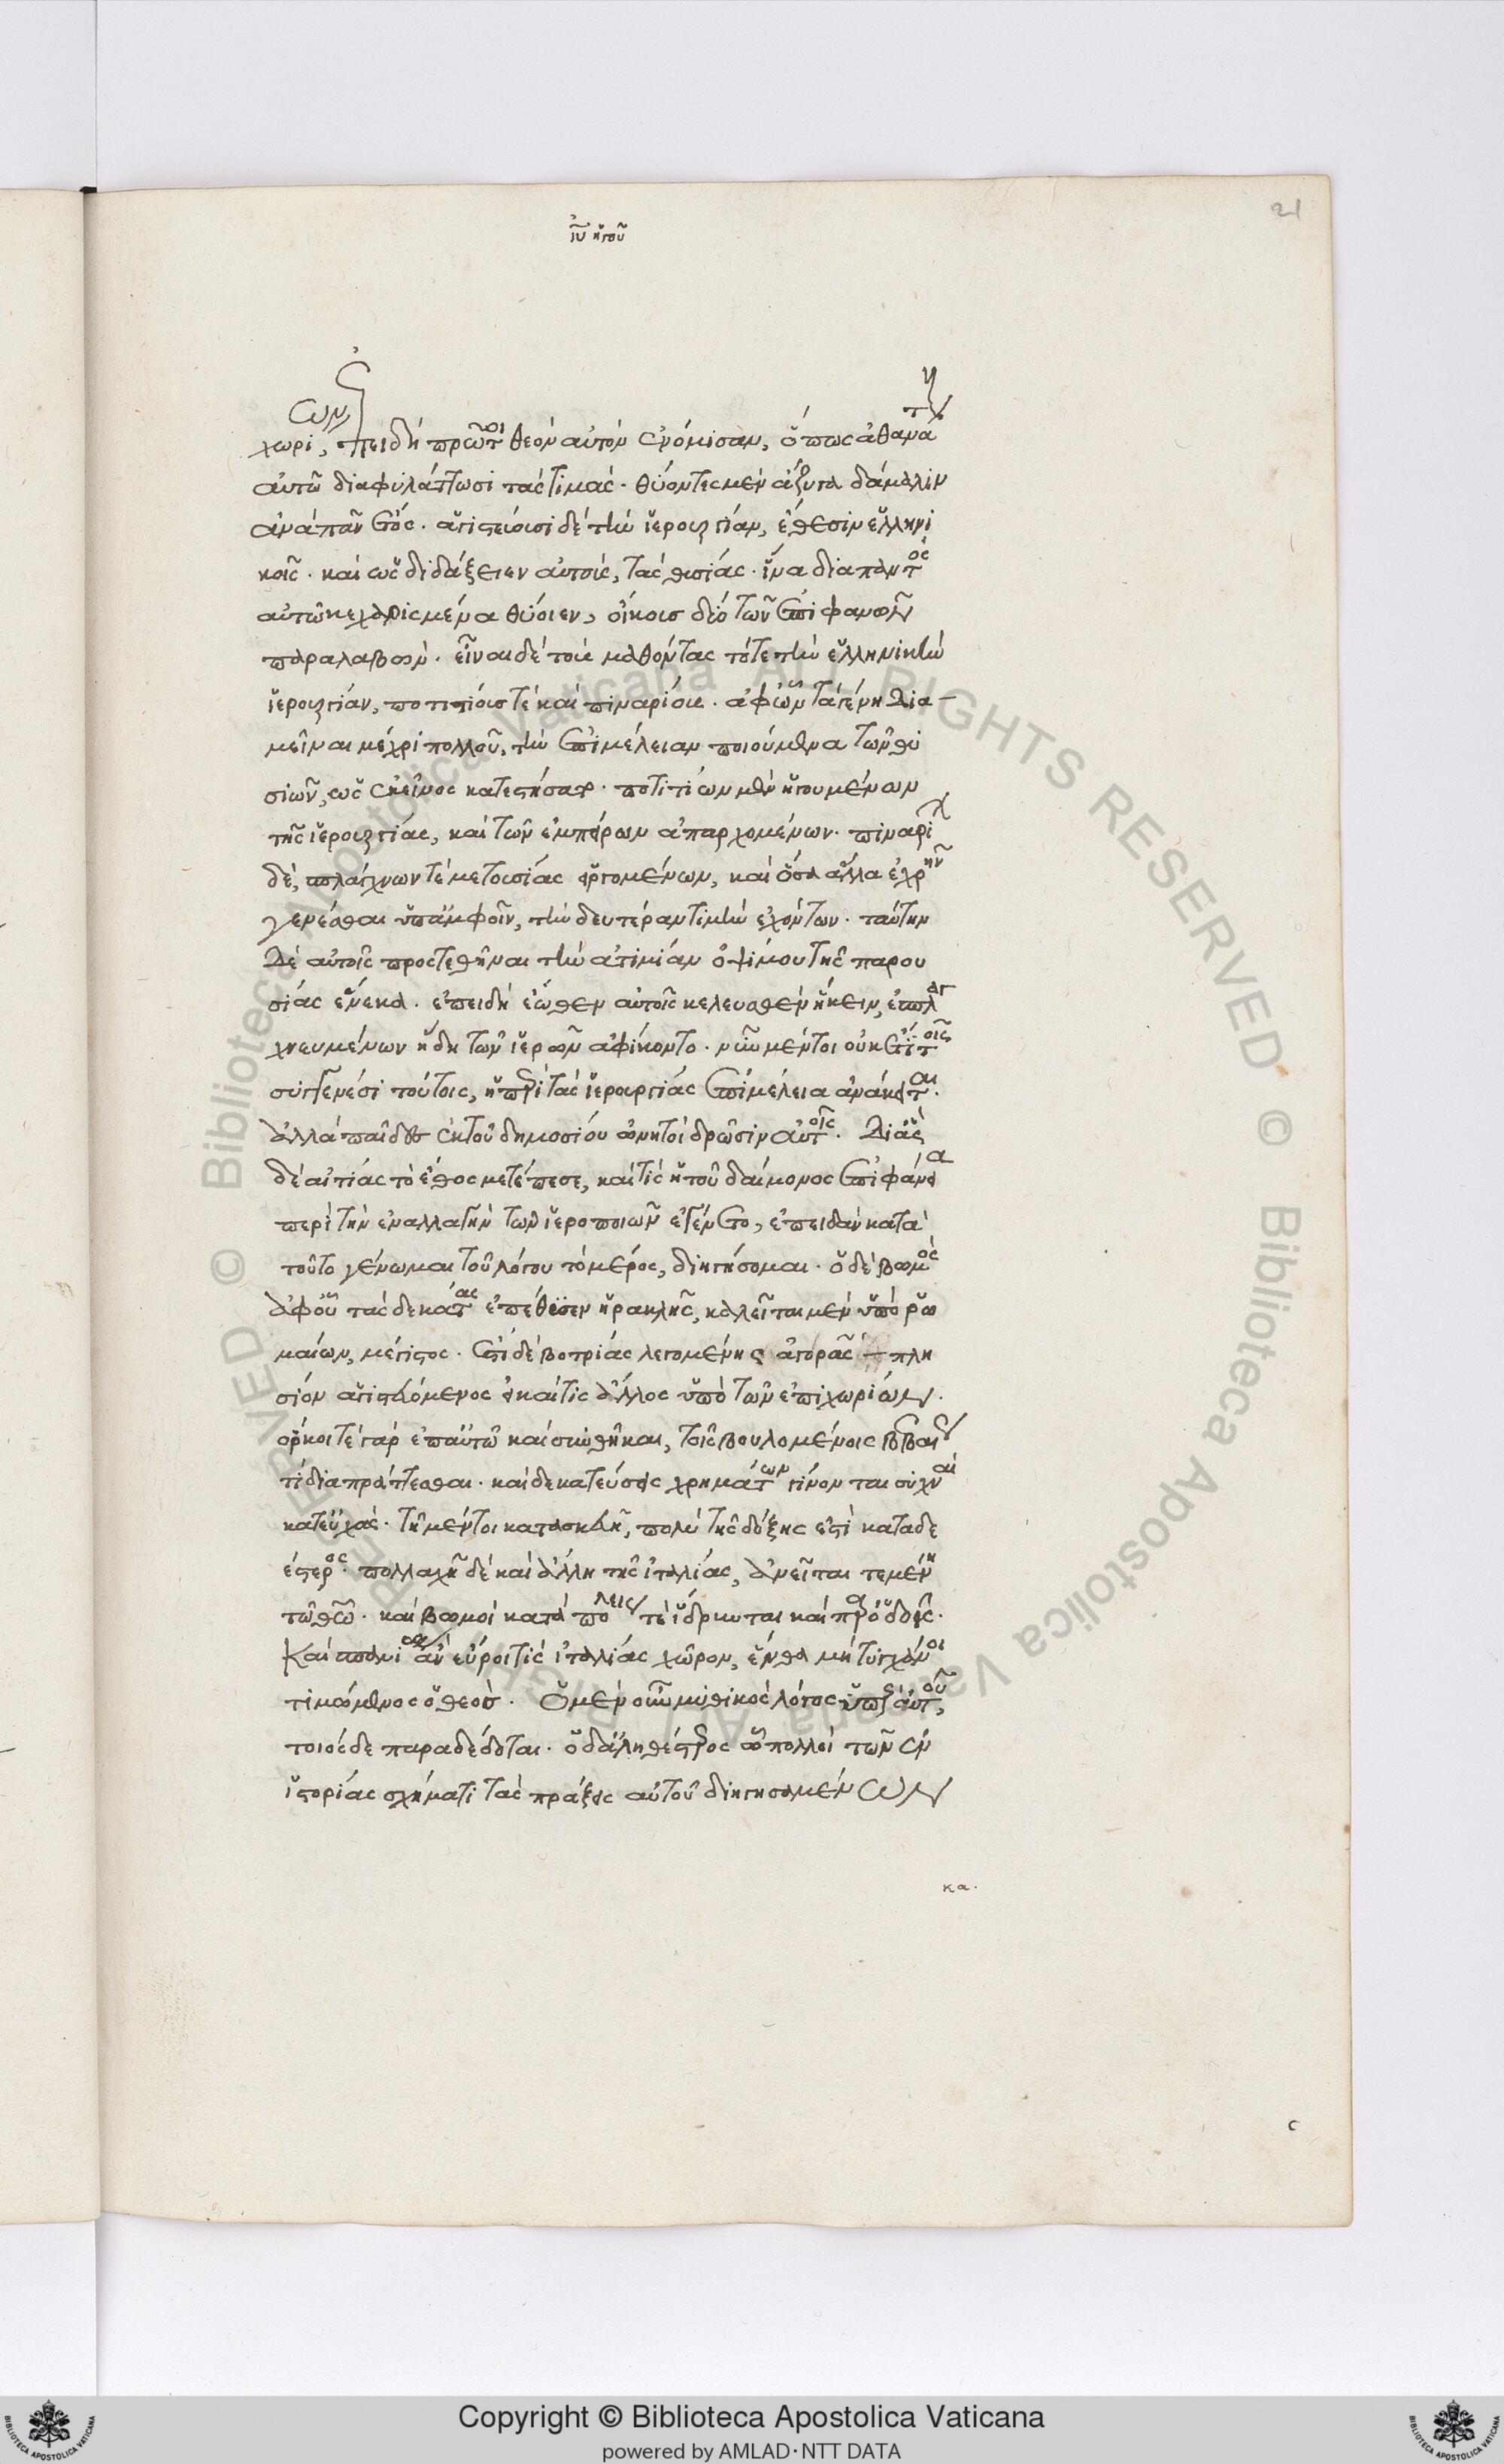 21
χωρίων, ἐπειδὴ πρῶτοι θεὸν αὐτὸν ἐνόμισαν, ὅπως ἀθανάτους
αὐτῶ διαφυλάττωσι τὰς τιμὰς· θύοντες μὲν ἄζυγα δάμαλιν
ἀνὰ πᾶν ἔτος· ἁγιστεύουσι δὲ τὴν ἱερουργίαν, ἔθεσιν ἑλληνι
κοῖς· καὶ ὡς διδάξειεν αὐτοὺς, τὰς θυσίας· ἵνα διὰ παντὸς
αὐτῶ κεχαρισμένα θύοιεν, οἴκους δύο τῶν ἐπιφανῶν
παραλαβὼν· εἶναι δὲ τοὺς μαθόντας τότε τὴν ἑλληνικὴν
ἱερουργίαν, ποτιτίους τὲ καὶ πιναρίους· ἀφ' ὧν τὰ γένη δια
μεῖναι μέχρι πολλοῦ, τὴν ἐπιμέλειαν ποιούμενα τῶν θυ
σιῶν, ὡς ἐκεῖνος κατεστήσατο· ποτιτίων μὲν ἡγουμένων
τῆς ἱερουργίας, καὶ τῶν ἐμπύρων ἀπαρχομένων· πιναρίων
δὲ, σπλάγχνων τὲ μετουσίας εἰργομένων, καὶ ὅσα ἄλλα ἐχρῆν
γενέσθαι ὑπ' ἀμφοῖν, τὴν δευτέραν τιμὴν ἐχόντων· ταύτην
δὲ αὐτοῖς προστεθῆναι τὴν ἀτιμίαν ὀψίμου τῆς παρου
σίας ἕνεκα· ἐπειδὴ ἕωθεν αὐτοῖς κελευσθὲν ἥκειν, ἐσπλαγ
χνευμένων ἤδη τῶν ἱερῶν ἀφίκοντο· νῦν μέντοι οὐκ ἔτι τοῖς
συγγενέσι τούτοις, ἡ περὶ τὰς ἱερουργίας ἐπιμέλεια ἀνάκειται·
ἀλλὰ παῖδες ἐκ τοῦ δημοσίου ὠνητοὶ δρῶσιν αὐτοῖς· Δι' ἃς
δὲ αἰτίας τὸ ἔθος μετέπεσε, καὶ τίς ἡ τοῦ δαίμονος ἐπιφάνεια
περὶ τὴν ἐναλλαγὴν τῶν ἱεροποιῶν ἐγένετο, ἐπειδὰν κατὰ
τοῦτο γένωμαι τοῦ λόγου τὸ μέρος, διηγήσομαι· ὁ δὲ βωμὸς
ἀφ' οὗ τὰς δεκάτας ἐπέθυσεν ἡρακλῆς, καλεῖται μὲν ὑπὸ ῥω
μαίων, μέγιστος· ἐστὶ δὲ βοτρίας λεγομένης ἀγορᾶς πλη
σίον ἁγιστευόμενος εἰ καί τις ἄλλος ὑπὸ τῶν ἐπιχωρίων·
ὅρκοι τὲ γὰρ ἐπ' αὐτῶ καὶ συνθῆκαι, τοῖς βουλομένοις βεβαίως
τὶ διαπράττεσθαι· καὶ δεκατεύσεις χρημάτων γίνονται συχναὶ
κατευχάς· τῆ μέντοι κατασκευῆ, πολὺ τῆς δόξης ἐστὶ καταδε
έστερος· πολλαχῆ δὲ καὶ ἄλλη τῆς ἰταλίας, ἀνεῖται τεμένη
τῶ θεῶ· καὶ βωμοὶ κατὰ πόλεις τὲ ἵδρυνται καὶ παρ' ὁδοῖς·
Καὶ σπανίως ἂν εὕροι τὶς ἰταλίας χῶρον, ἔνθα μὴ τυγχάνοι
τιμώμενος ὁ θεὸς· Ὁ μὲν οὖν μυθικὸς λόγος ὑπὲρ αὐτοῦ,
τοιόσδε παραδέδοται· ὁ δ' ἀληθέστερος ᾧ πολλοὶ τῶν ἐν
ἱστορίας σχήματι τὰς πράξεις αὐτοῦ διηγησαμένων
κα·
Copyright © Biblioteca Apostolica Vaticana
powered by AMLAD·NTT DATA